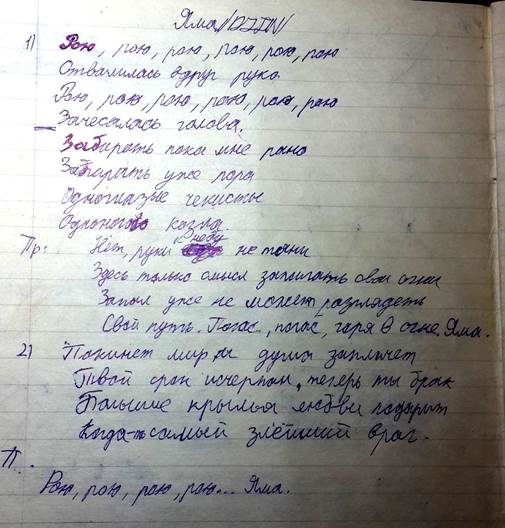 Яма//DJIN/
1) Рою, рою, рою, рою, рою, рою
Отвалилась вдруг рука
Рою, рою, рою, рою, рою, рою
Зачесалась голова.
Забирать пока мне рано
Забирать уже пора
Одноглазые чекисты
Одноного козла.
Пр: Нет, руки к небу не тяни
Здесь только смысл зажигать свои огни
Запал уже не может разглядеть
Свой путь. Погас, погас, горя в огне. Яма.
2) Покинет мир и душа заплачет
Твой срок исчерпан, теперь ты брак
Большие крылья любви подарит
Когда-то самый злейший враг.
П.
Рою, рою, рою, рою... Яма.